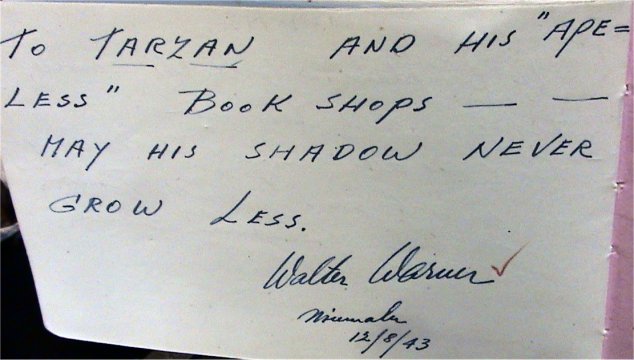 To TARZAN AND HIS "APE=
LESS" BOOK SHOPS — —
MAY HIS SHADOW NEVER
GROW LESS.
Walter Warner
12/8/43